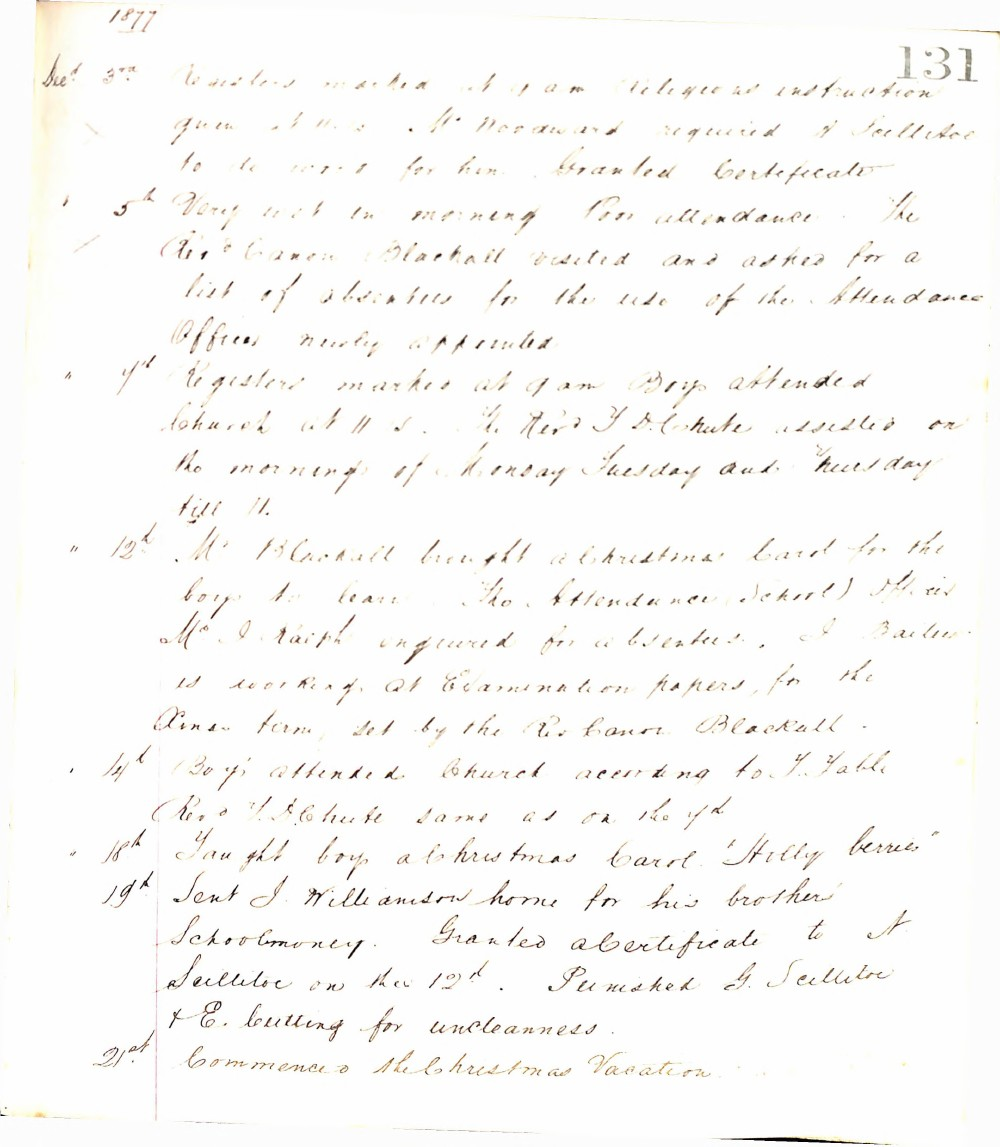 1877
131
Decr 3rd Registers marked at 9 am Religious instruction
given at 11.15 Mr Woodward required A Scillitoe
to do work for him. Granted Certificate
" 5th Very wet in morning Poor attendance. The
Revd Canon Blackall visited and asked for a
list of absentees for the use of the Attendance
Officer newly appointed
" 7th Registers marked at 9 am Boys attended
Church at 11 . The Revd T D. Chute assisted on
the mornings of Monday Tuesday and Thursday
till 11.
" 12th Mr Blackall brought a Christmas Carol for the
boys to learn. The Attendance (School) Officer
Mr J Ralph enquired for absentees. J Bailey
is working at Examination papers, for the
Xmas term, set by the Rev Canon Blackall.
" 14th Boys attended Church according to T. Table
Revd T. D. Chute same as on the 7th
" 18th Taught boys a Christmas Carol "Holly berries"
19th Sent J. Williamson home for his brother's
Schoolmoney. Granted a Certificate to A
Scillitoe on the 12th. Punished G. Scillitoe
& E. Cutting for uncleanness.
21st Commenced the Christmas Vacation.